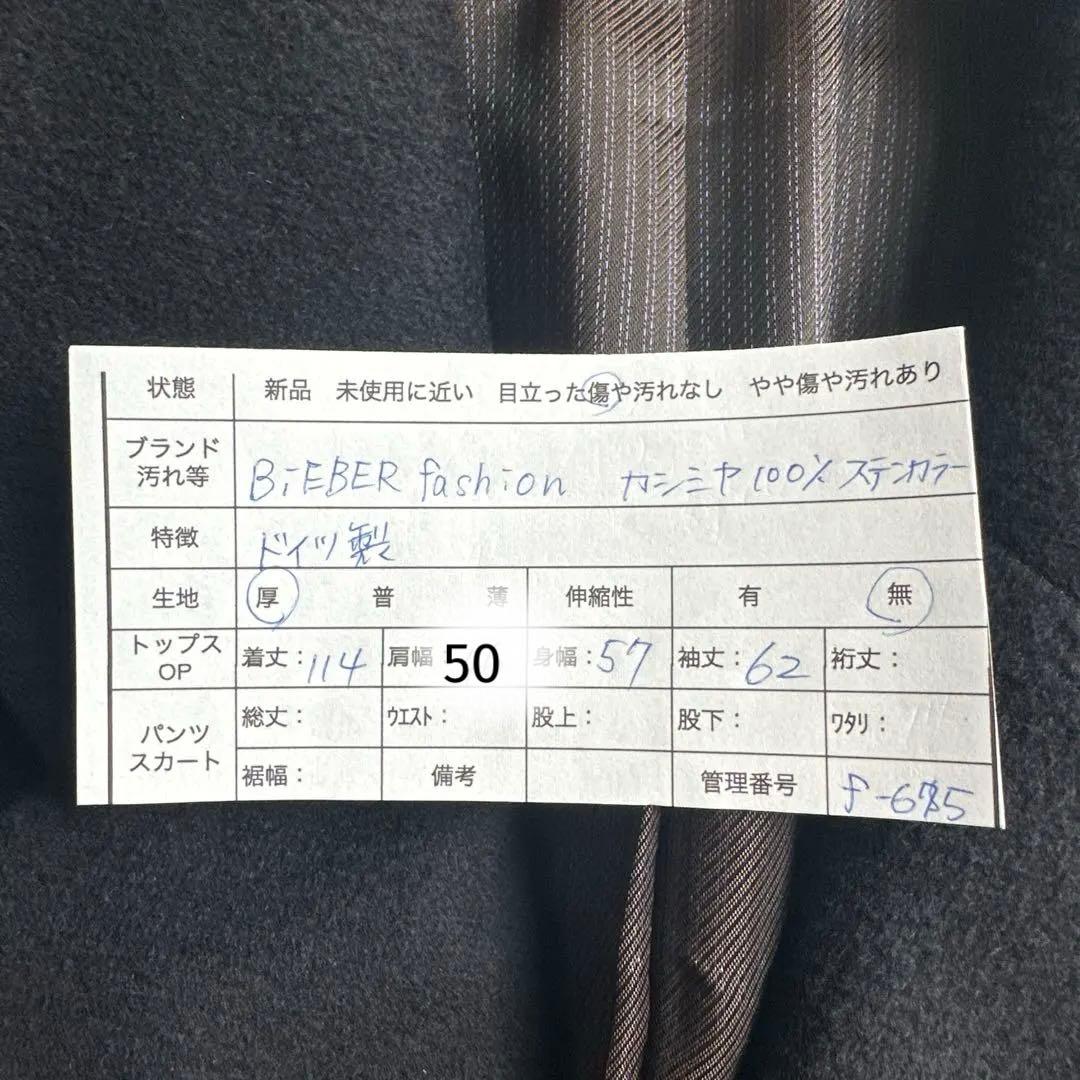 状態 新品 未使用に近い 目立った傷や汚れなし やや傷や汚れあり
ブランド
汚れ等
BiEBER fashion カシミヤ100% ステンカラー
特徴 ドイツ製
生地 厚 普 薄 伸縮性 有 無
トップス
OP
着丈:114 肩幅 50 身幅:57 袖丈:62 裄丈:
パンツ
スカート
総丈: ウエスト: 股上: 股下: ワタリ:
裾幅: 備考 管理番号